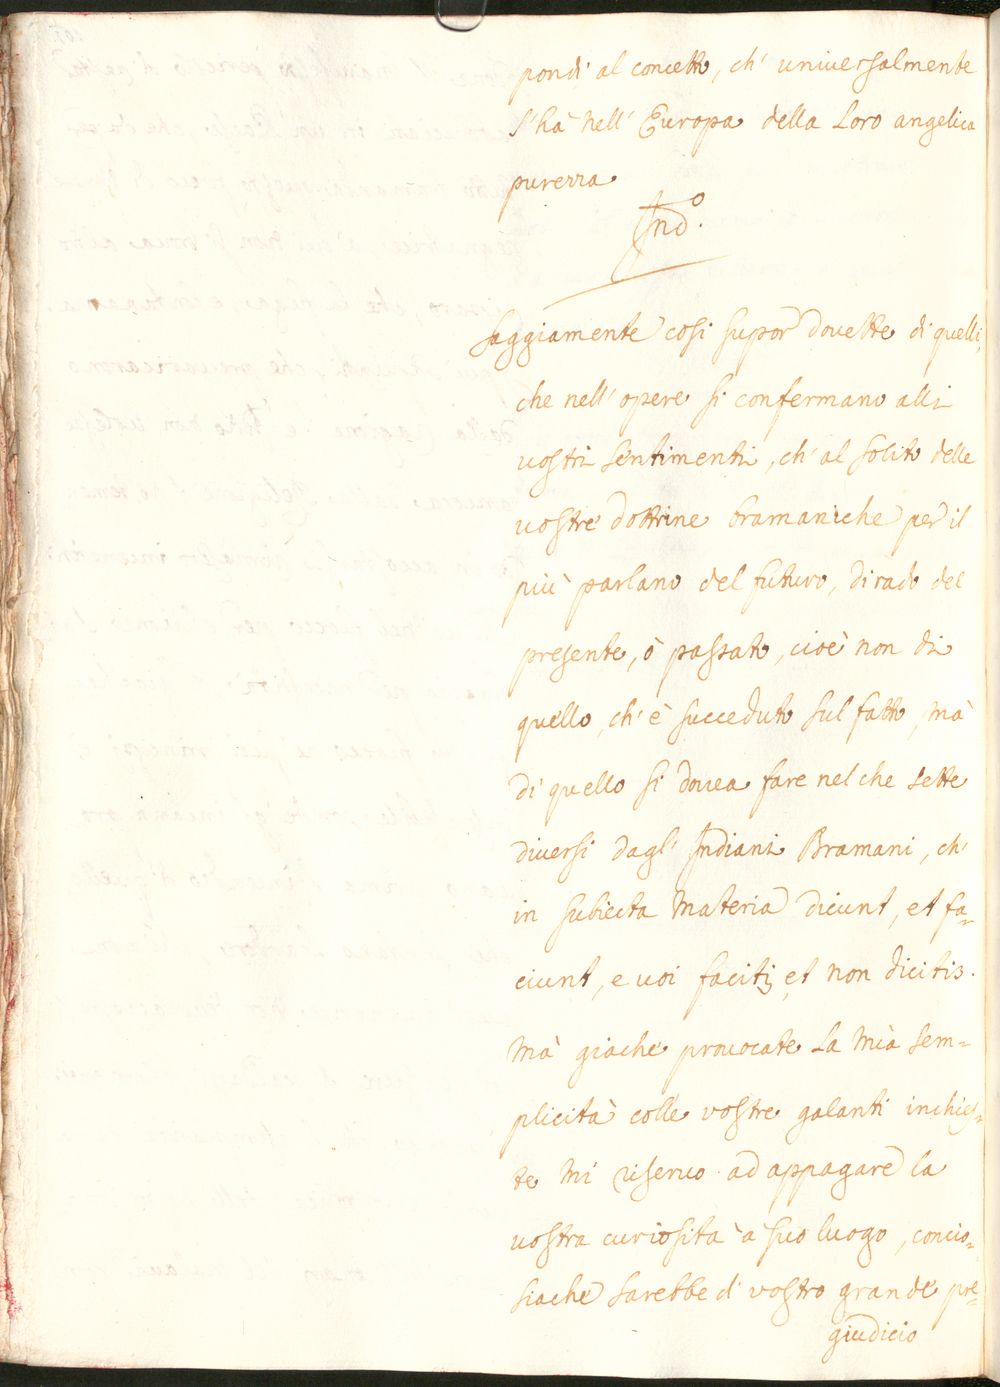 pondi al concetto, ch' universalmente
s'hà nell' Europa della Loro angelica
purezza
Ind.º
Saggiamente così supor dovette di quelli,
che nell' opere si confermano alli
vostri sentimenti, ch' al solito delle
vostre dottrine bramaniche per il
più parlano del futuro, di rado del
presente, ò passato, cioè non di
quello, ch' è succeduto sul fatto, mà
di quello si dovea fare nel che sette
diversi dagl' Indiani Bramani, ch'
in subiecta materia dicunt, et fa=
ciunt, e voi facitis, et non dicitis.
Mà giache provocate la mia sem=
plicità colle vostre galanti inchies=
te mi riservo ad appagare la
vostra curiosità à suo luogo, concio=
siache sarebbe di vostro grande pre=
giudicio